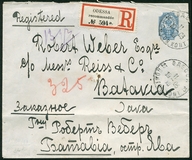 Registered
ОДЕССА
№ 594
Robert Weber Esqre
c/o Messrs Reiss & Co
Batavia
325
Заказное Ява
Гну Робертъ Веберъ
Батавiя, остр. Ява